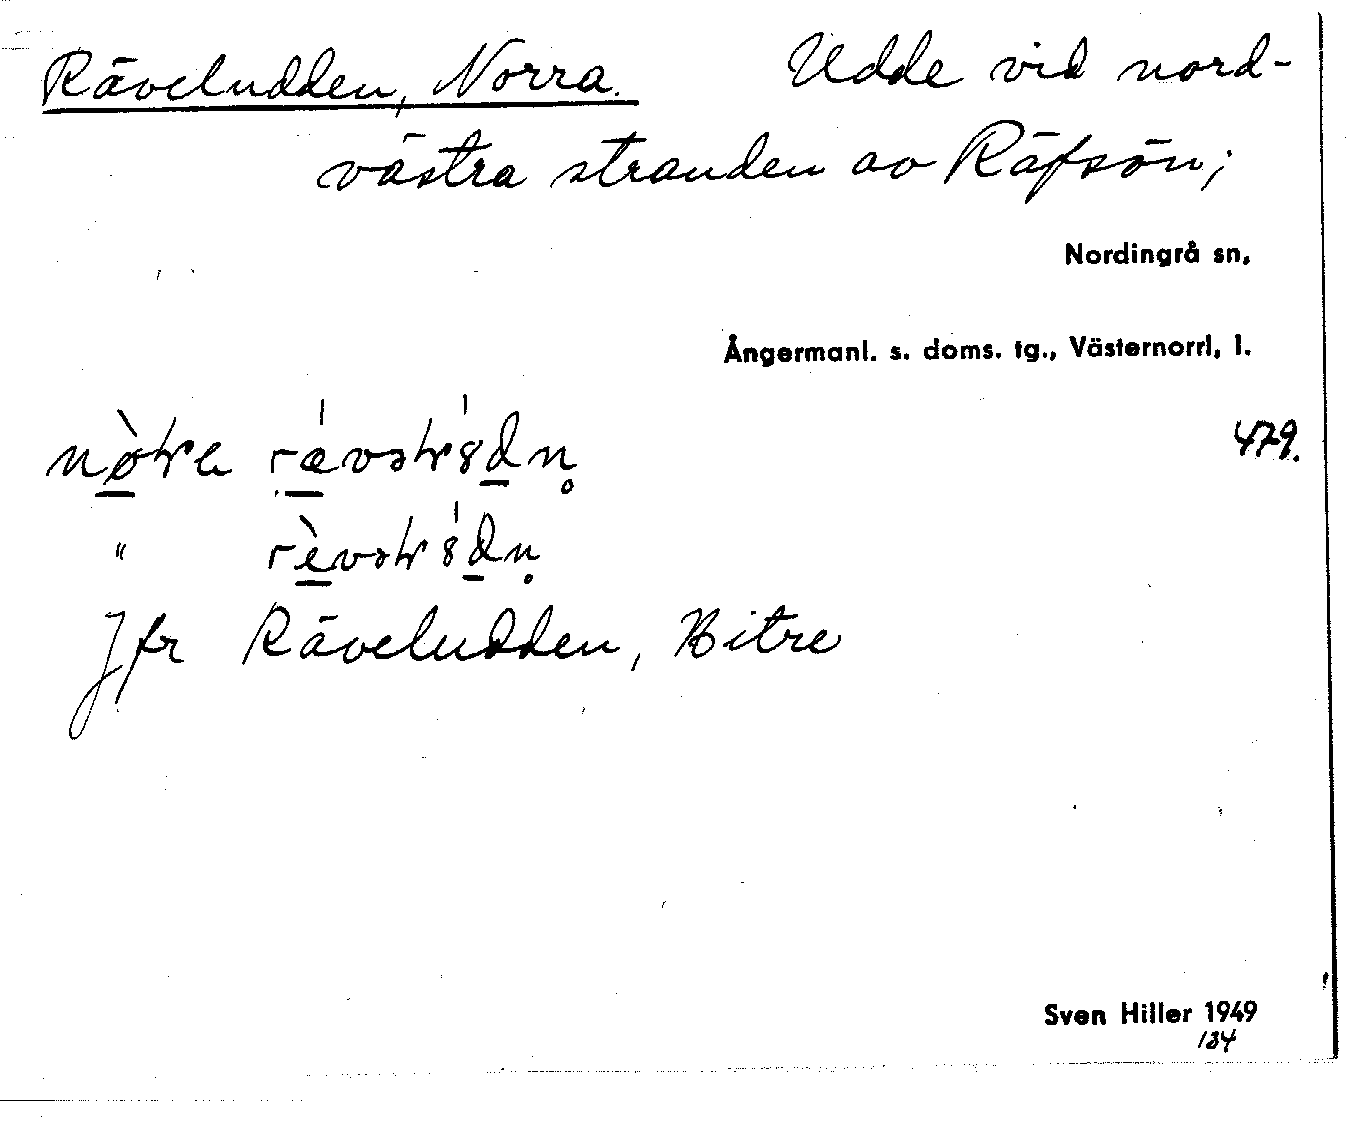 Räveludden, Norra. Udde vid nord-
västra stranden av Räfsön;
Nordingrå sn,
Ångermanl. s. doms. tg., Västernorrl, l.
479.
"
Jfr Räveludden, Bitre
Sven Hiller 1949
134